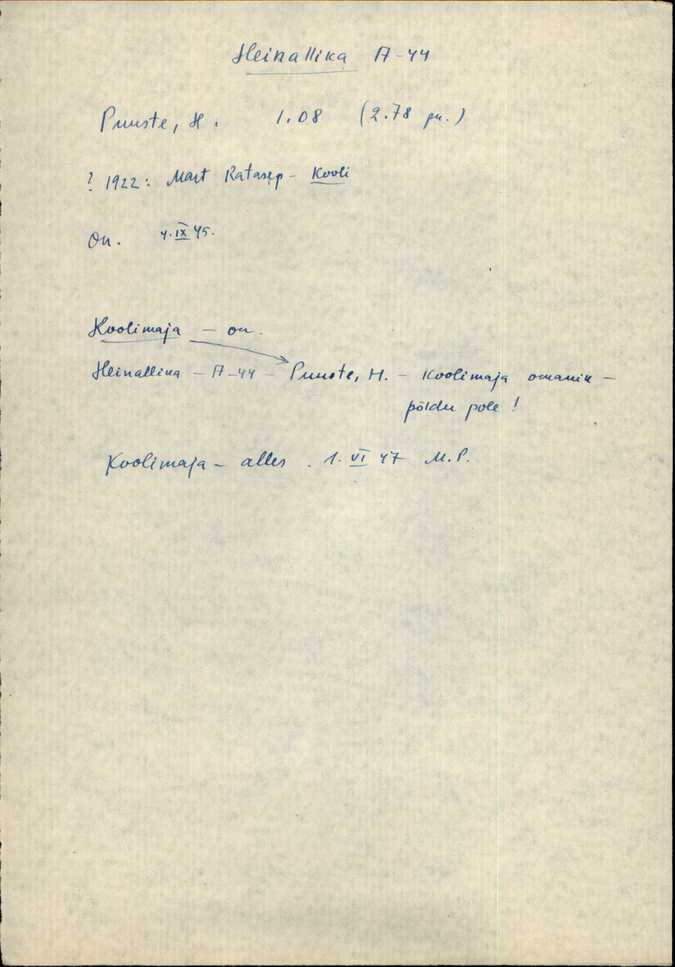 Heinallika A-44
Puuste, H. 1.08 (2.78 pu.)
? 1922: Mart Ratasep - Kooli
On. 4.IX 45.
Koolimaja - on.
Heinallika - A-44 - Puuste, H. - Koolimaja omanik -
põldu pole !
Koolimaja - alles . 1. VI 47 M.P.